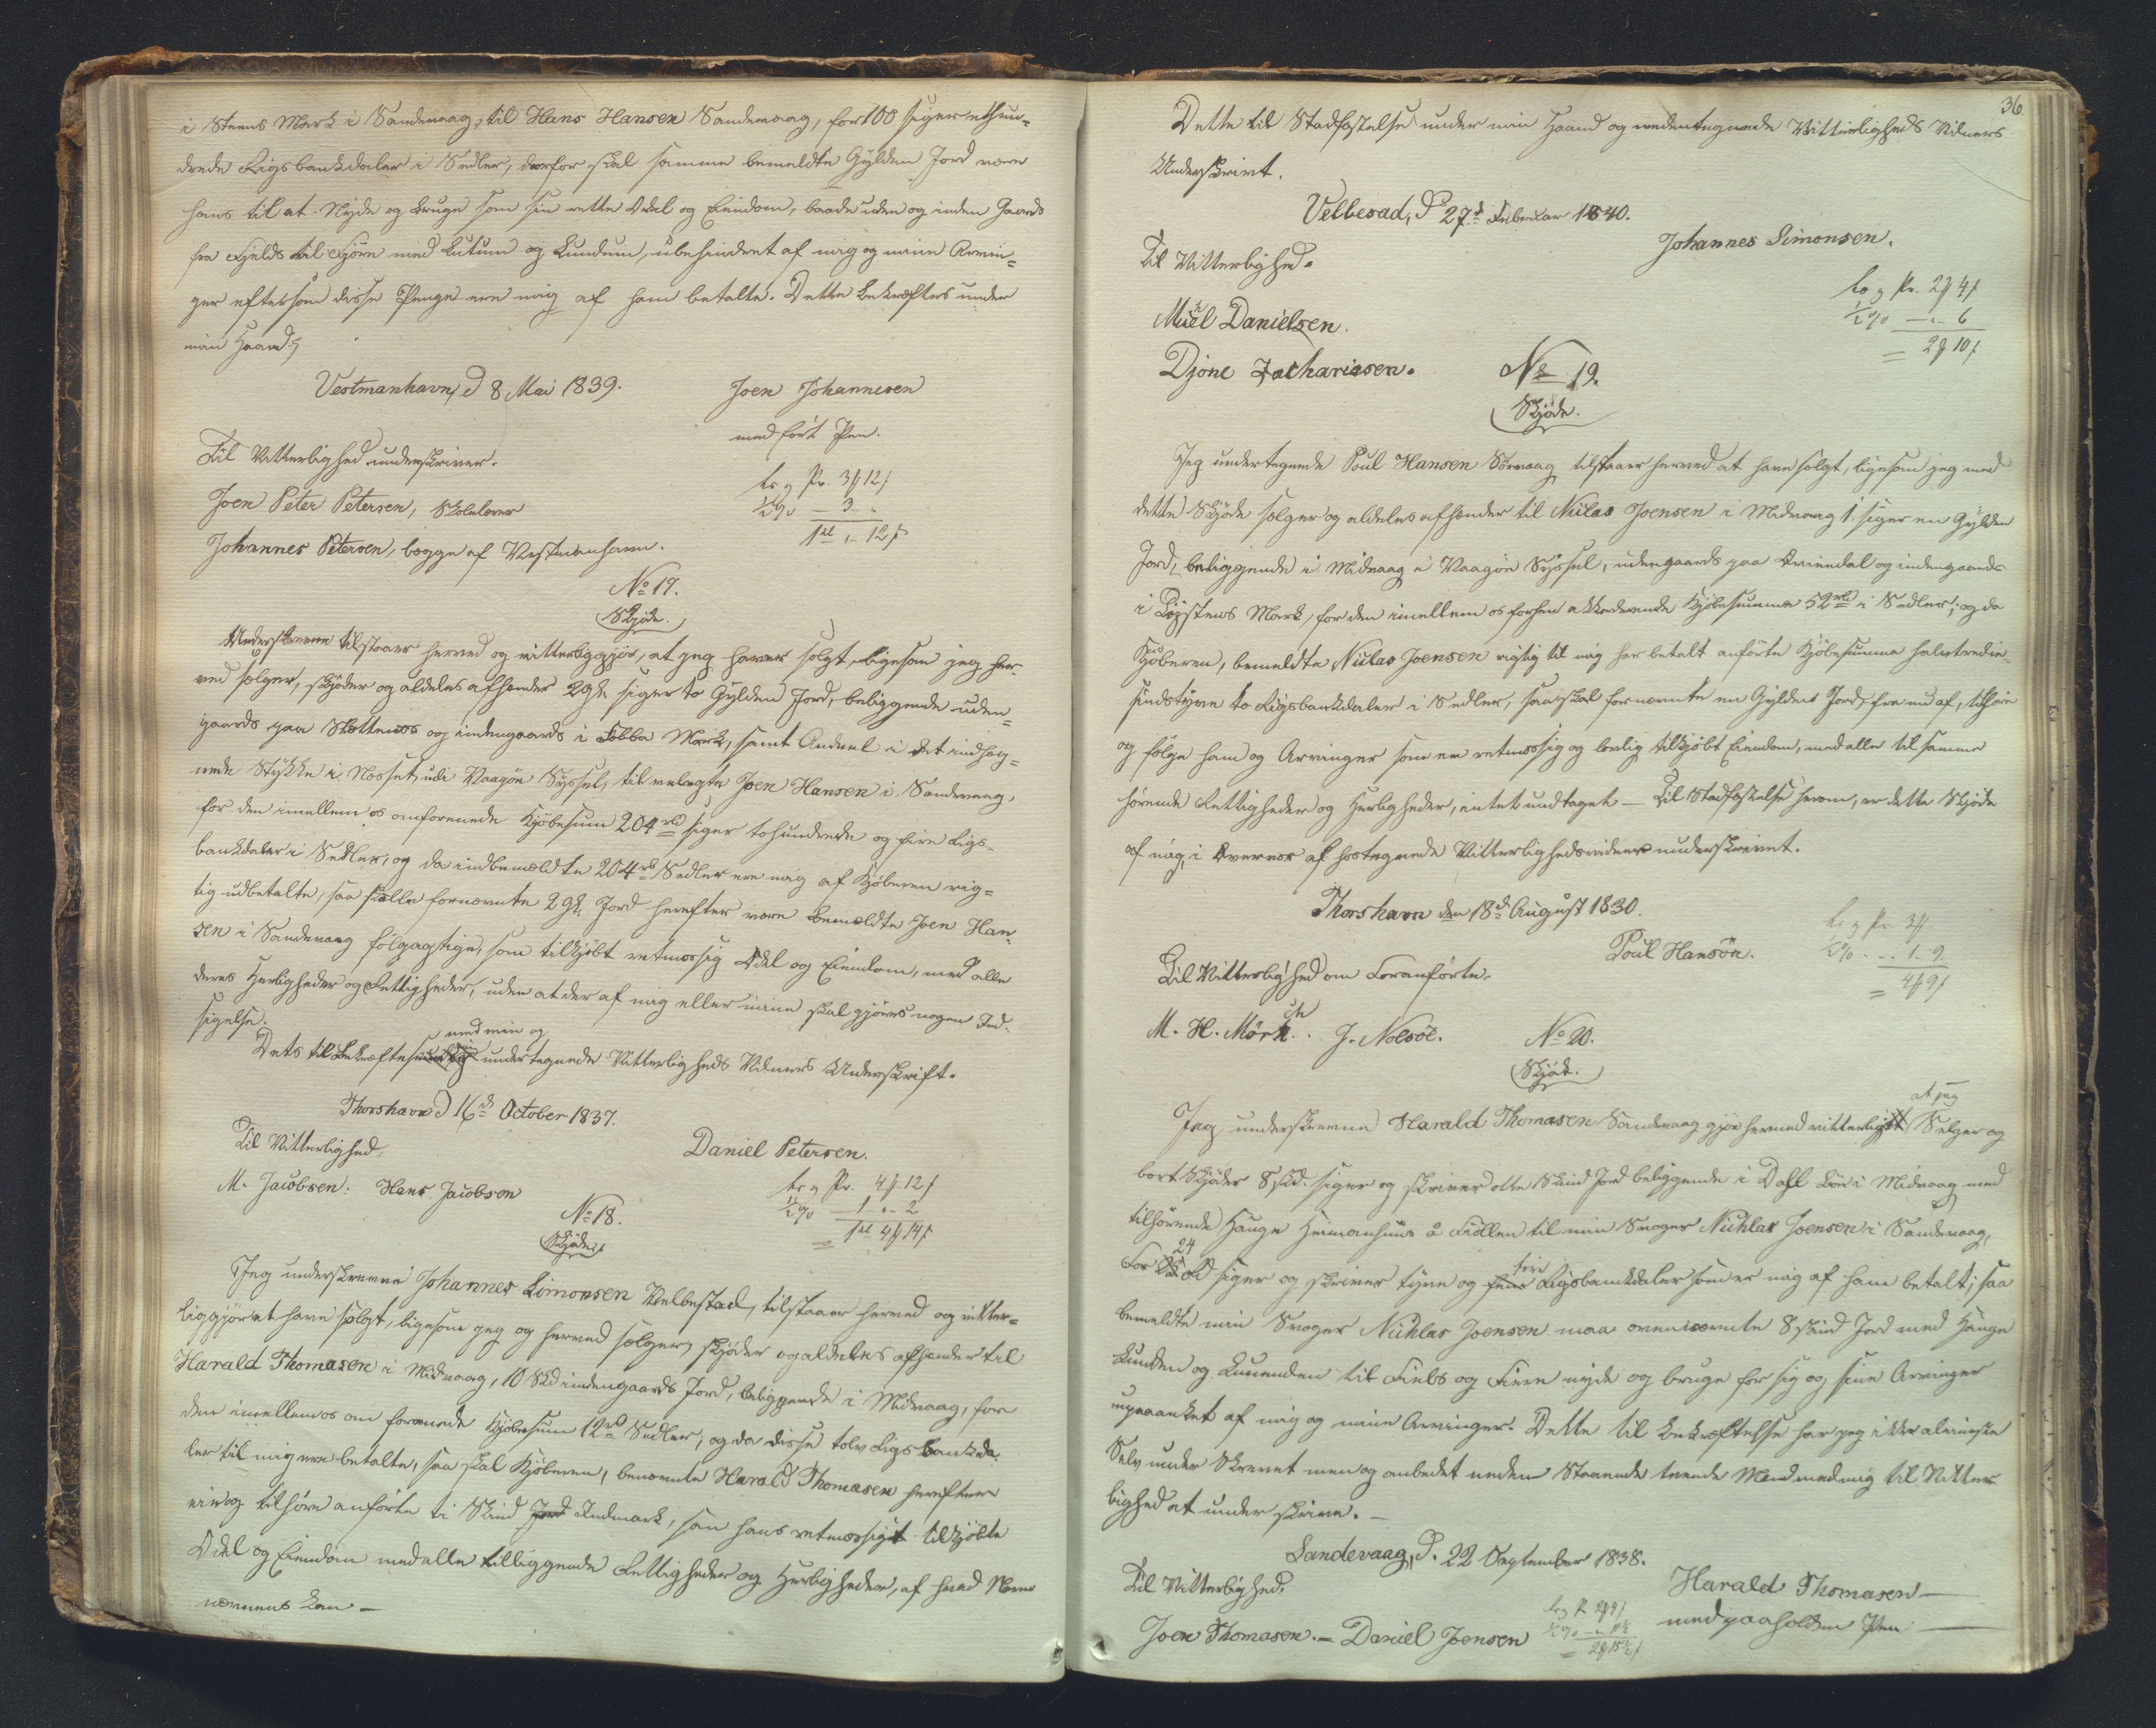 i Steens Mark i Sandevaag, til Hans Hansen Sandevaag, for 100 siger ethun=
drede Rigsbankdaler i Sedler, derfor skal samme bemeldte Gylden Jord være
hans til at Nyde og bruge som sin rette Odel og Eiendom, baade uden og inden Gaards
fra Fjelds til Fjøre med Lutum og Lundum, ubehindret af mig og mine Arvin=
ger eftersom disse Penge ere mig af ham betalte. Dette bekræftes under
min Haand.
Vestmanhavn, d 8 Mai 1839.
Joen Johannesen
med ført Pen.
Til Vitterlighed underskriver.
Joen Peter Petersen, Skolelærer
Johannes Petersen, begge af Vestmanhavn.
1/2 % — 3 "
No 17.
Skjøde.
Underskrevne tilstaaer herved og vitterliggjør, at jeg haver solgt, ligesom jeg her=
ved sælger, skjøder og aldeles afhænder 2 Gl. siger to Gylden Jord, beliggende uden=
gaards paa Skottenæs og indengaards i Fobba Mark, samt Andeel i det indheg=
nede Stykke i Nosset, udi Vaagøe Syssel, til velagte Joen Hansen i Sandevaag,
for den imellem os omforenede Kjøbesum 204 rd siger tohundrede og fire Rigs=
bankdaler i Sedler, og da indbemeldte 204 rd Sedler ere mig af Kjøberen rig=
tig udbetalte, saa skulle fornævnte 2 Gl. Jord herefter være bemeldte Joen Han=
sen i Sandevaag følgagtige, som tilkjøbt retmæssig Odel og Eiendom, med alle
deres Herligheder og Rettigheder, uden at der af mig eller mine skal gjøres nogen Ind=
sigelse.
med min og
Dets til Bekræftelse undertegnede Vitterligheds Vidners Underskrift.
Thorshavn d 16d October 1837.
Til Vitterlighed.
Daniel Petersen.
M. Jacobsen. Hans Jacobsen
1/2 % — 1 " 2
No 18.
Skjøde.
Jeg underskrevne Johannes Simonsen Velbestad, tilstaaer herved og vitter=
liggjør at have solgt, ligesom jeg og herved sælger, skjøder og aldeles afhænder til
Harald Thomasen i Midvaag, 10 Skd indengaards Jord, beliggende i Midvaag, for
den imellem os om forenede Kjøbesum 12 rd Sedler; og da disse tolv Rigsbankda=
ler til mig ere betalte, saa skal Kjøberen, benævnte Harald Thomasen herefter
eie og tilhøre anførte ti Skind Jord Indmark, som hans retmæssigt tilkjøbte
Odel og Eiendom med alle tilliggende Rettigheder og Herligheder, af hvad Navn
nævnes kan —
36.
Dette til Stadfæstelse under min Haand og nedentegnede Vitterligheds Vidners
Underskrivt.
Velbesad, d 27d Februar 1840.
Johannes Simonsen.
Til Vitterlighed.
Mich Danielsen.
1/2 % — " 6
Djone Zachariasen.
No 19.
Skjøde.
Jeg undertegnede Poul Hansen Sørvaag tilstaaer herved at have solgt, ligesom jeg med
dette Skjøde sælger og aldeles afhænder til Niclas Joensen i Midvaag 1. siger en Gylden
Jord, beliggende i Midvaag i Vaagøe Syssel, udengaards paa Kviendal og indengaards
i Løgsteens Mark, for den imellem os forhen akkorderede Kjøbesumma 52 rbd i Sedler; og da
Kjøberen, bemeldte Niclas Joensen rigtig til mig har betalt anførte Kjøbesumma halvtredie=
sindstyve to Rigsbankdaler i Sedler, saa skal fornævnte en Gylden Jord, fra nu af, tilhøre
og følge ham og Arvinger som en retmæssig og lovlig tilkjøbt Eiendom, med alle til samme
hørende Rettigheder og Herligheder, intet undtaget — Til Stadfæstelse herom, er dette Skjøde
af mig, i Overvær af hostegnede Vitterlighedsvidner underskrivet.
Thorshavn den 18d August 1830.
Poul Hansøn.
1/2 % - - - 1 - 9.
Til Vitterlighed om Foranførte.
M. H. Mörch. J. Nolsöe.
No 20.
Skjøde.
at jeg
Jeg underskrevne Harald Thomasen Sandevaag gjør herved vitterligt Sælger og
bort Skjøder 8 skd. siger og skriver otte Skind Jord beliggende i Dahl Bøe i Midvaag med
tilhørende Hauge Heimanhuus å Fiøllen til min Svoger Nichlas Joensen i Sandevaag,
24
fire
For rbd siger og skriver tyve og Rigsbankdaler som er mig af ham betalt; saa
bemeldte min Svoger Nichlas Joensen maa ovennævnte 8 skind Jord med Hauge
Lunden og Luuenden til Fields og Fiere nyde og bruge for sig og sine Arvinger
upaaanket af mig og mine Arvinger. Dette til bekræftelse har jeg ikke aleneste
Selv under Skrevet men og anbedet neden Staaende tvende Mænd med mig til Vitter
lighed at under skrive. —
Sandevaag, d. 22 September 1838.
Til Vitterlighed.
Harald Thomasen —
med paaholden Pen —
Joen Thomasen. — Daniel Joensen